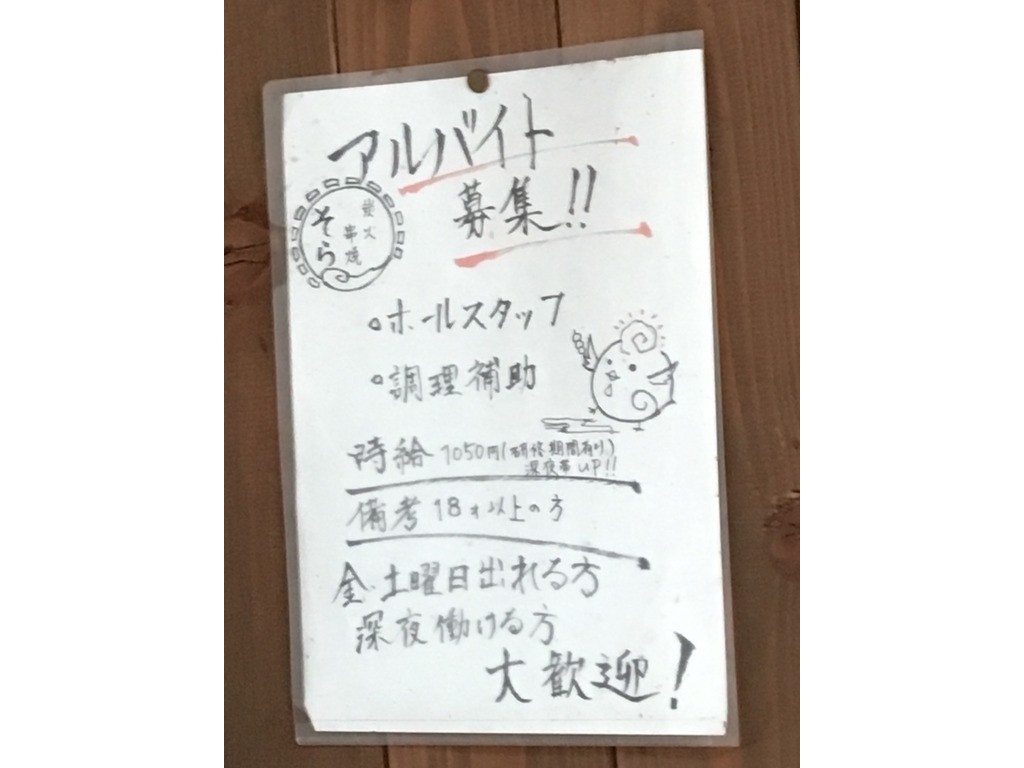 アルバイト
募集!!
炭火
串焼
そら
・ホールスタッフ
・調理補助
時給 1050円(研修期間有り)
深夜帯UP!!
備考 18才以上の方
金・土曜日出れる方
深夜働ける方
大歓迎!